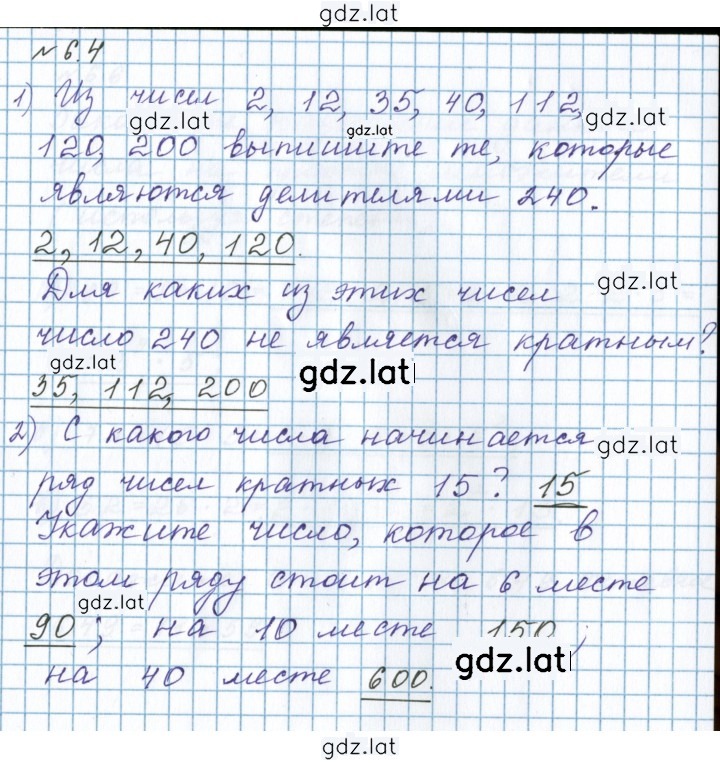 gdz.lat
№ 6.4
1) Из чисел 2, 12, 35, 40, 112,
gdz.lat gdz.lat gdz.lat
120, 200 выпишите те, которые
являются делителями 240.
2, 12, 40, 120.
Для каких из этих чисел gdz.lat
число 240 не является кратным?
gdz.lat gdz.lat
35, 112, 200
2) С какого числа начинается
gdz.lat
ряд чисел кратных 15? 15
Укажите число, которое в
этом ряду стоит на 6 месте
gdz.lat
90; на 10 месте 150;
gdz.lat
на 40 месте 600.
gdz.lat